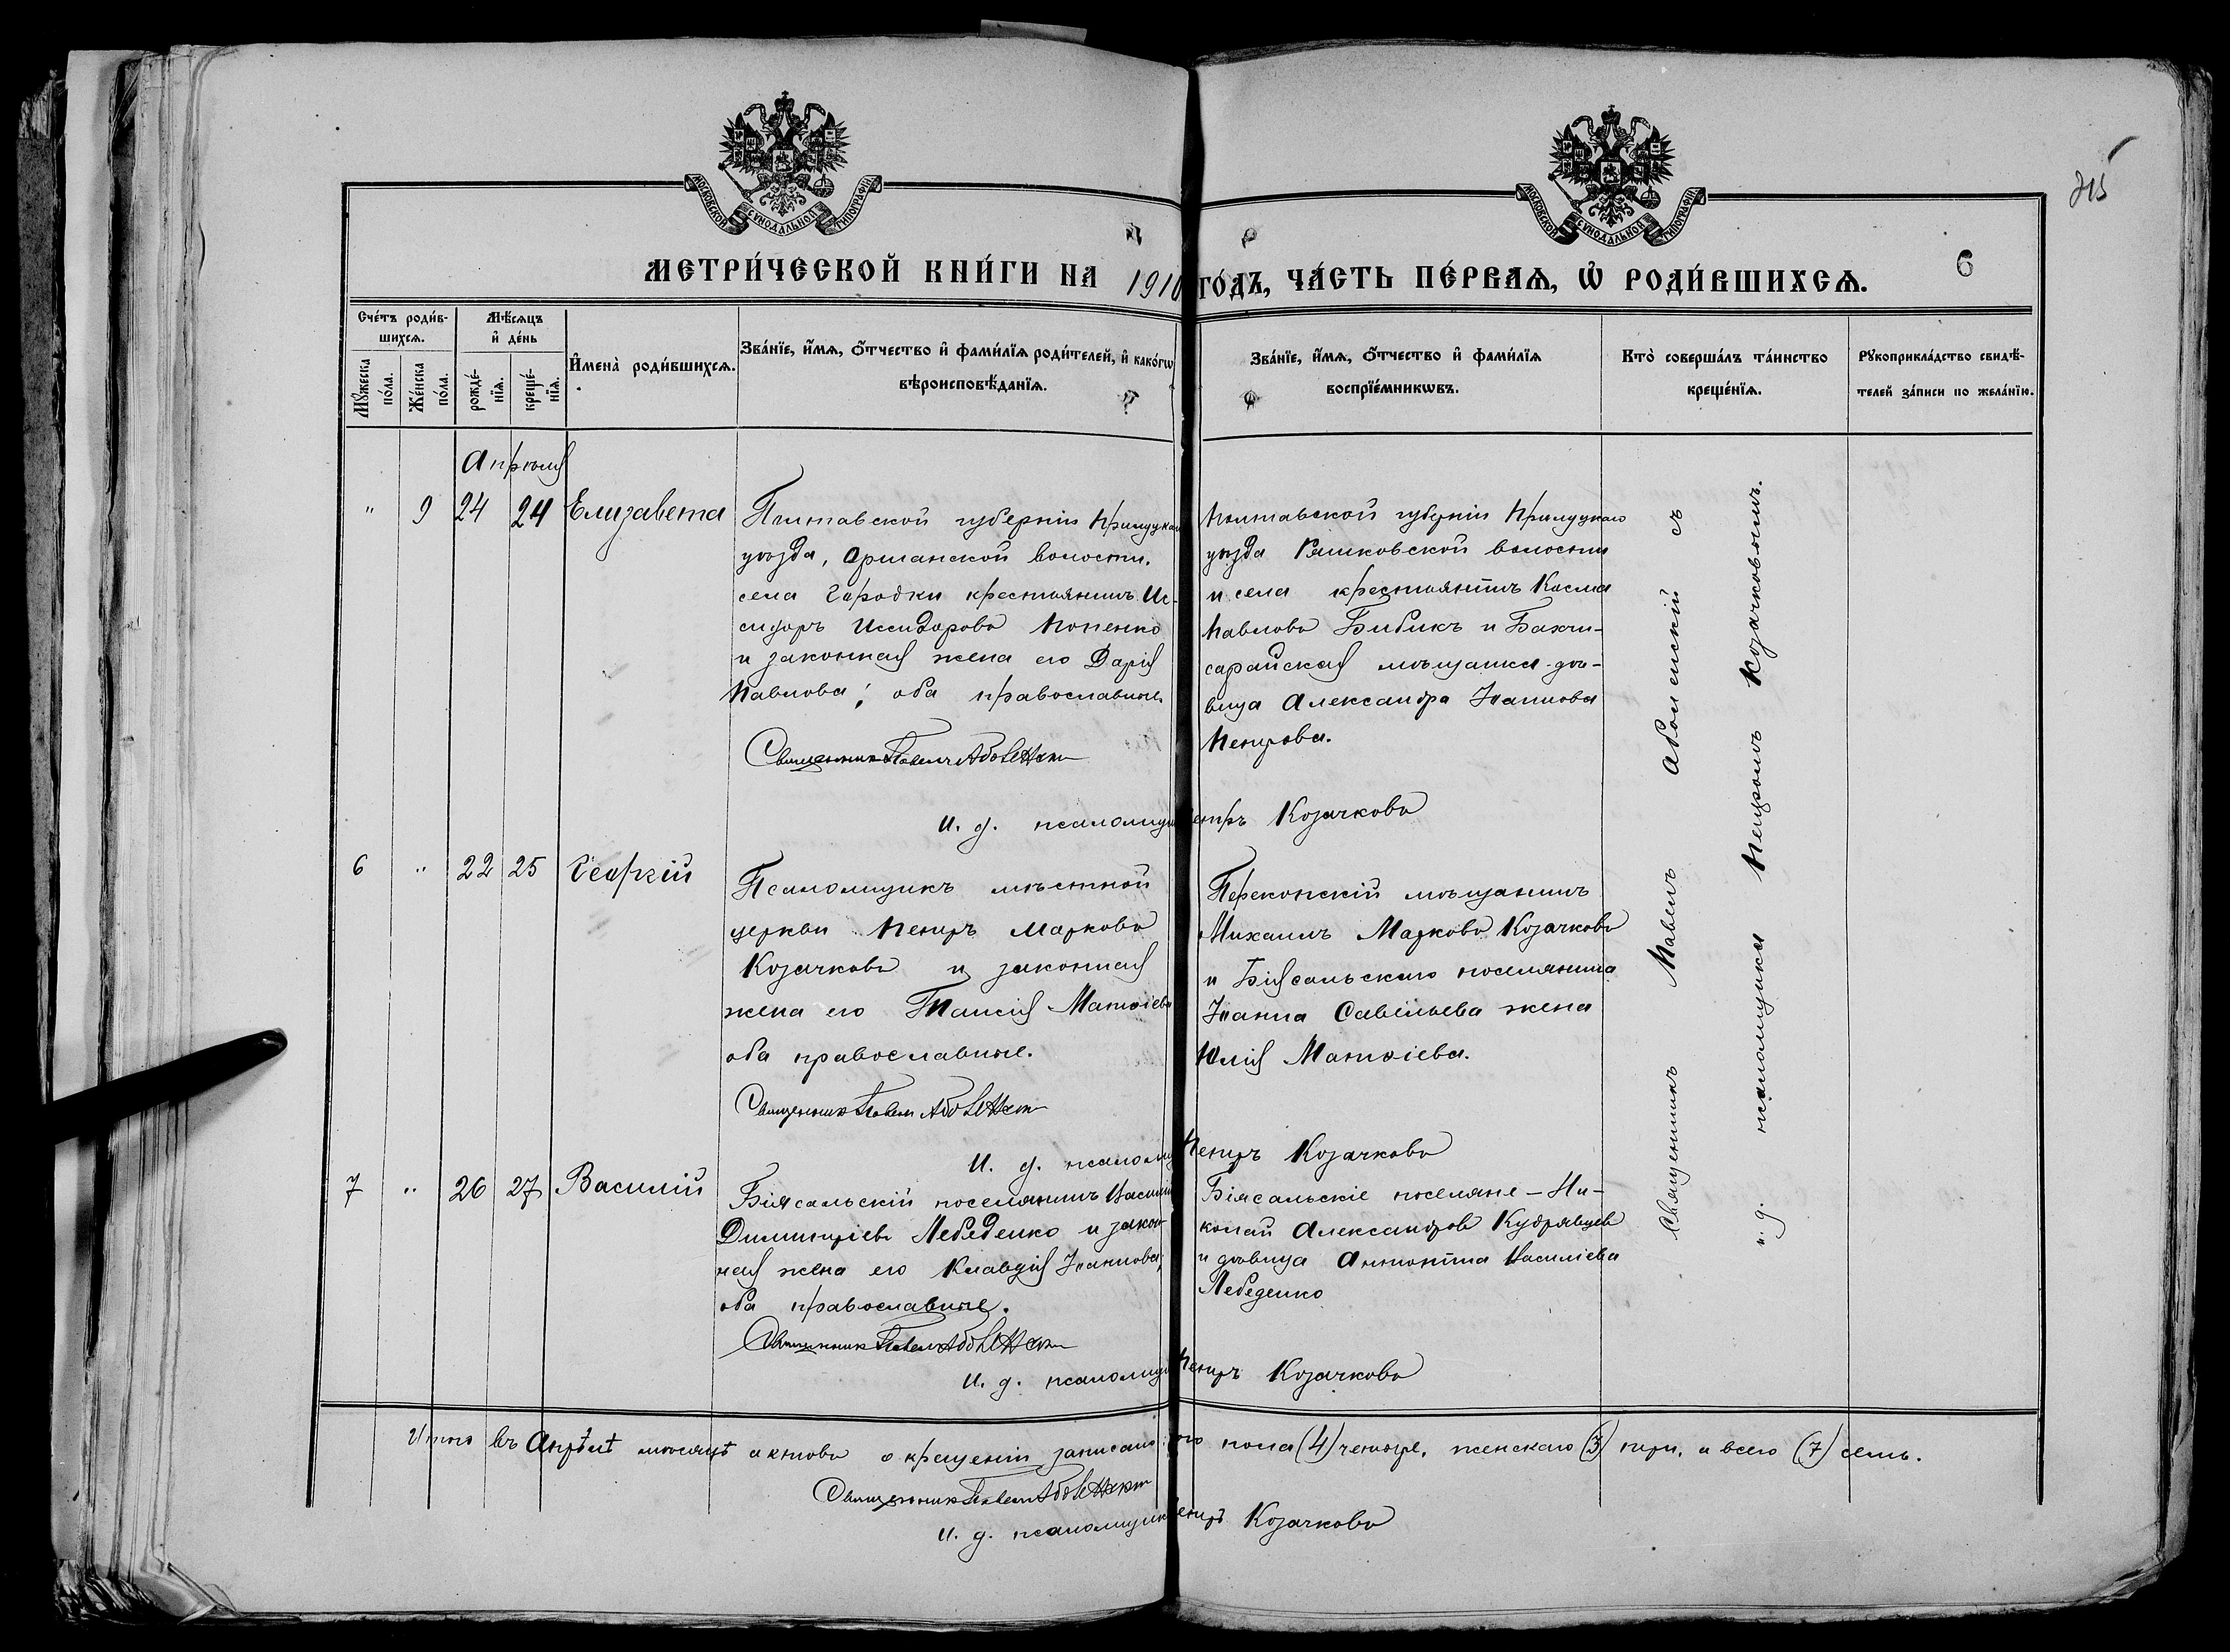 315
6
МОСКОВСКОЙ СѴНОДАЛЬНОЙ ТИПОГРАФІИ
МОСКОВСКОЙ СѴНОДАЛЬНОЙ ТИПОГРАФІИ
МЕТРИ́ЧЕСКОЙ КНИ́ГИ НА 1910 ГО́ДЪ, ЧА́СТЬ ПЕ́РВАѦ, Ѡ҆ РОДИ́ВШИХСѦ.
Сче́тъ роди́в-
шихсѧ.
Мꙋ́жеска по́ла.
Же́нска по́ла.
Мѣ́сѧцъ
и҆ де́нь
рожде́-
нїѧ.
креще́-
нїѧ.
И҆мена̀ роди́вшихсѧ.
Зва́нїе, и҆́мѧ, ѻ҆́тчество и҆ фами́лїѧ роди́телей, и҆ како́гѡ
вѣроисповѣ́данїѧ.
Зва́нїе, и҆́мѧ, ѻ҆́тчество и҆ фами́лїѧ
воспрїе́мникѡвъ.
Кто̀ соверша́лъ та́инство
креще́нїѧ.
Рꙋкоприкла́дство свидѣ́-
телей за́писи по жела́нїю.
Апрѣля
" 9 24 24 Елизавета
Полтавской губерніи Прилуцкаго
уѣзда, Оржанской волости,
села Городки крестьянинъ Ис-
сидоръ Иссидоровъ Попенко
и законная жена его Дарія
Павлова; оба православные
Священникъ Павелъ Аболенскій
Полтавской губерніи Прилуцкаго
уѣзда Рашковской волости
и села крестьянинъ Косма
Павловъ Бибикъ и Бахчи-
сарайская мѣщанка дѣ-
вица Александра Іоаннова
Петрова.
И. д. псаломщика Петръ Козачковъ
6 " 22 25 Георгій
Псаломщикъ мѣстной
церкви Петръ Марковъ
Козачковъ и законная
жена его Таисія Матѳіева
оба православные.
Священникъ Павелъ Аболенскій
Перекопскій мѣщанинъ
Михаилъ Марковъ Козачковъ
и Біясальскаго поселянина
Іоанна Савельева жена
Юлія Матѳіева.
И. д. псаломщика Петръ Козачковъ
7 " 26 27 Василій
Біясальскій поселянинъ Василій
Димитріевъ Лебеденко и закон-
ная жена его Клавдія Іоаннова;
оба православные.
Священникъ Павелъ Аболенскій
Біясальскіе поселяне – Ни-
колай Александровъ Кудрявцевъ
и дѣвица Антонина Василіева
Лебеденко
И. д. псаломщика Петръ Козачковъ
Священникъ Павелъ Аболенскій съ
и. д. псаломщика Петромъ Козачковымъ.
Итого въ Апрѣлѣ мѣсяцѣ актовъ о крещеніи записано пола (4) четыре, женскаго (3) три, а всего (7) семь.
Священникъ Павелъ Аболенскій
И. д. псаломщика Петръ Козачковъ